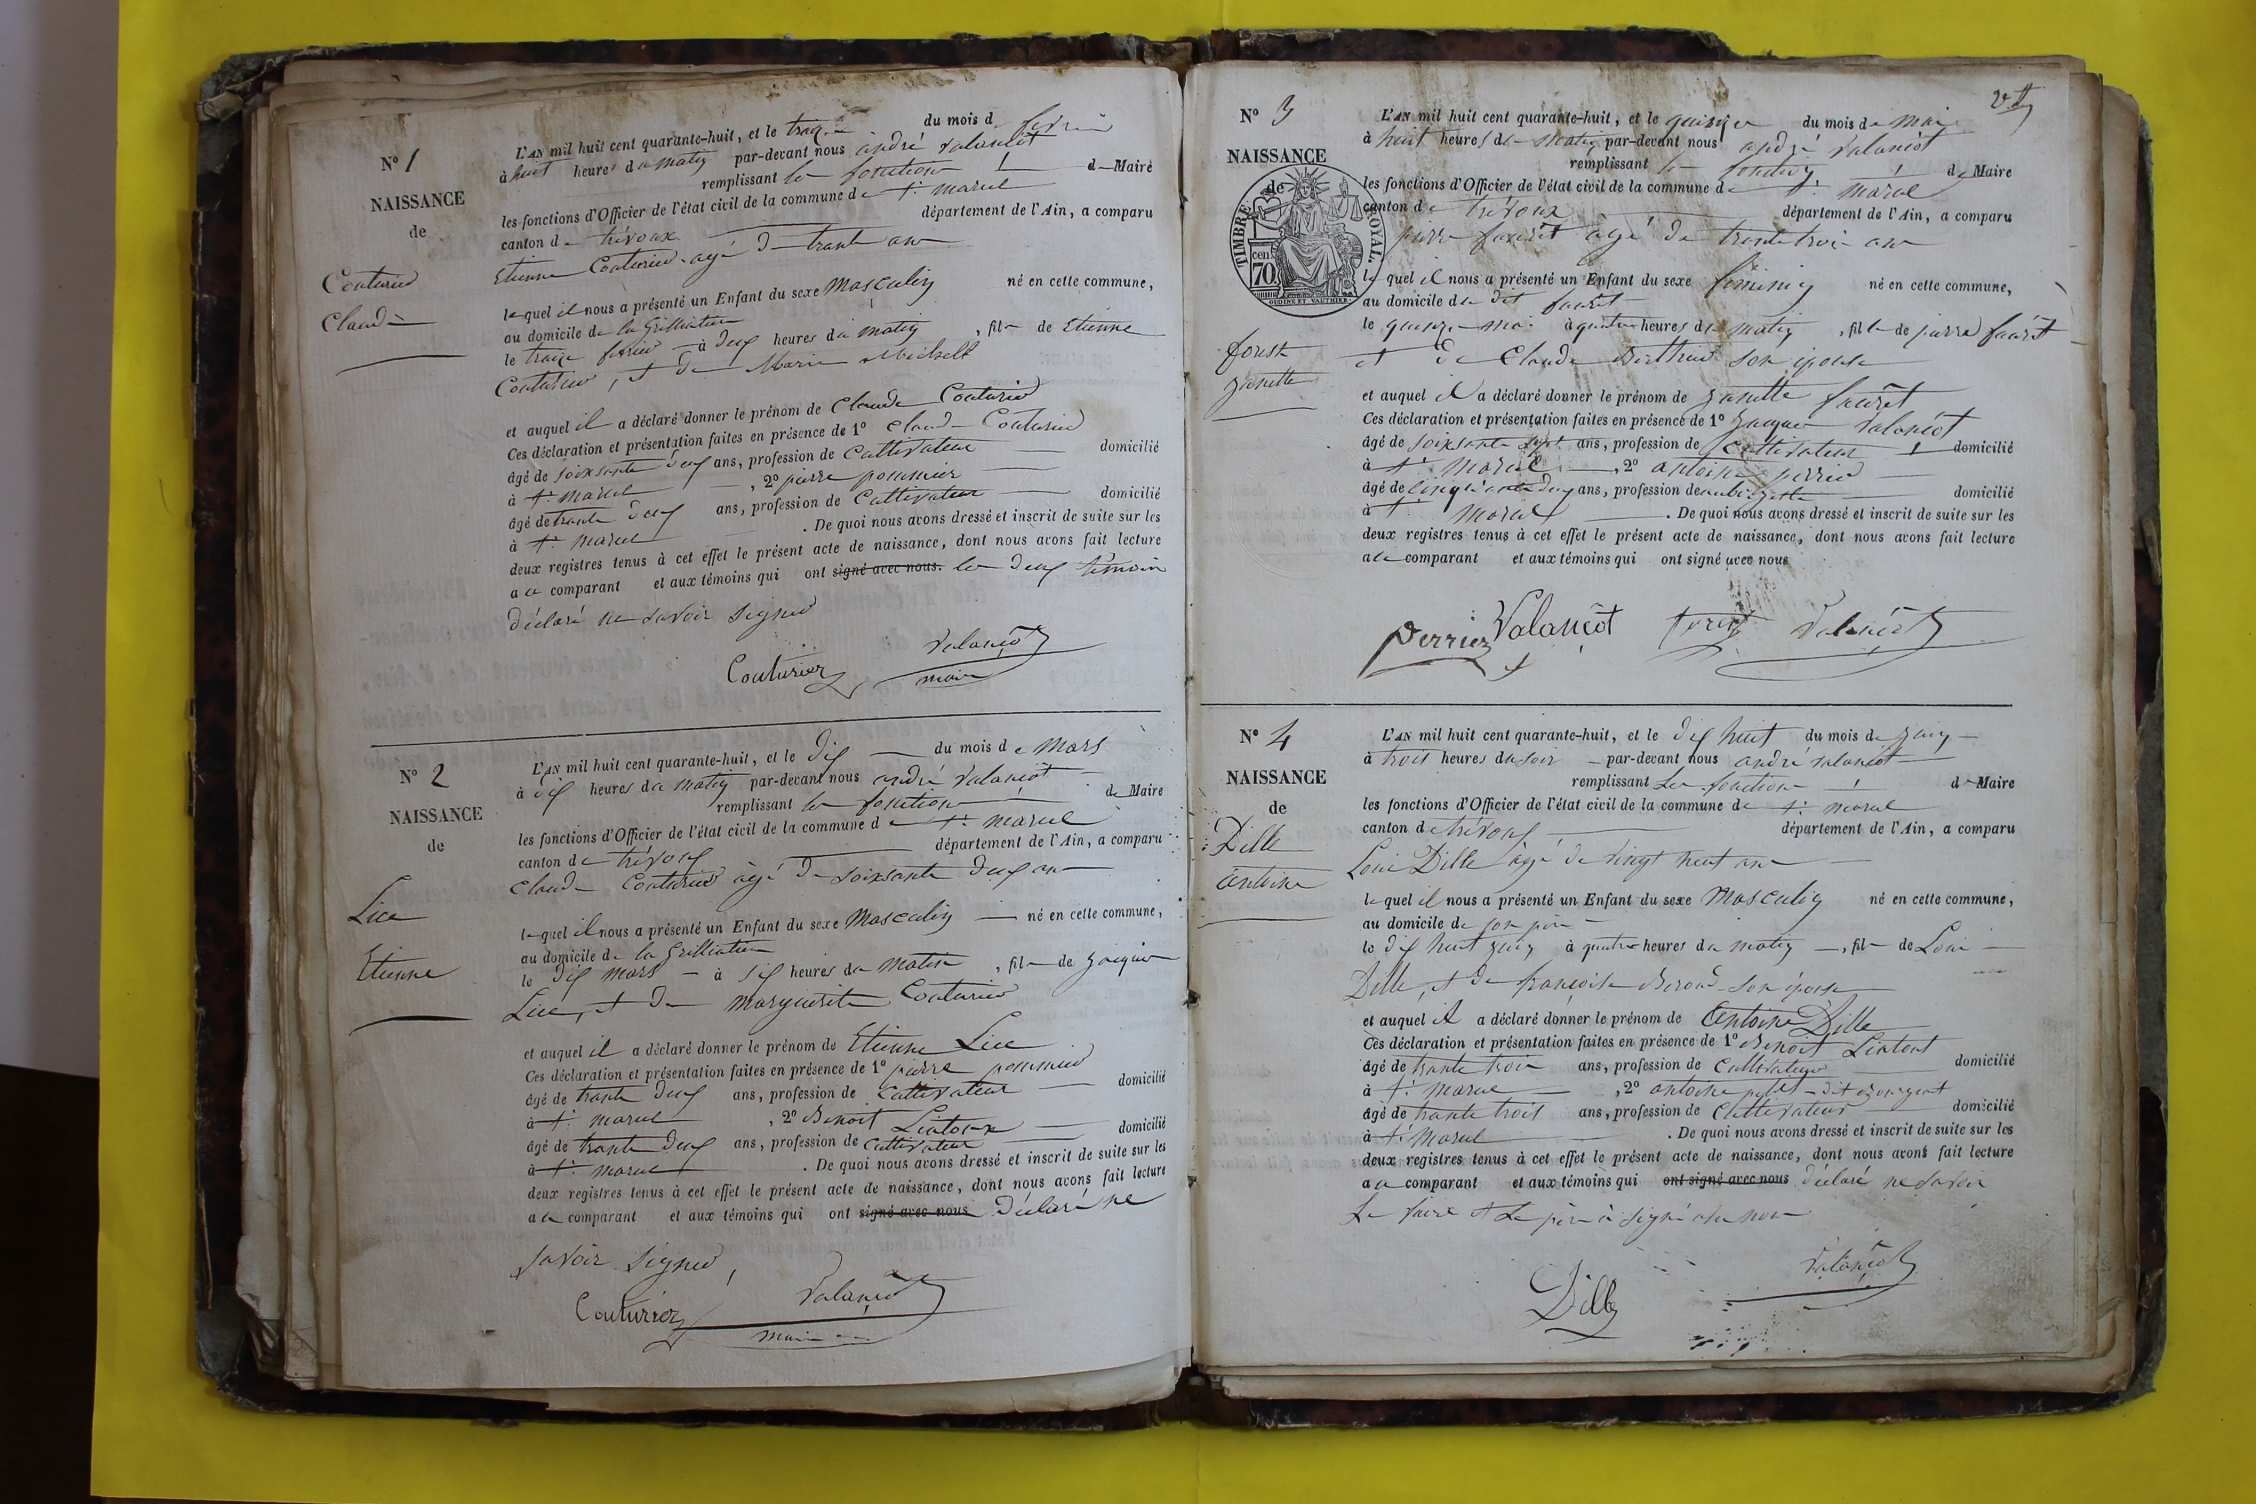 N° 1
NAISSANCE
de
Couturier
Claude
L'AN mil huit cent quarante-huit, et le treize du mois de fevrier
à huit heures du matin par-devant nous andré Valancôt
remplissant les fonctions de Maire
les fonctions d'Officier de l'état civil de la commune de St marcel
canton de trévoux département de l'Ain, a comparu
Etienne Couturier agé de trante ans
lequel il nous a présenté un Enfant du sexe Masculin né en cette commune,
au domicile de la
le treize fevrier à deux heures du matin, fils de Etienne
Couturier, et de Marie
et auquel il a déclaré donner le prénom de Claude Couturier
Ces déclaration et présentation faites en présence de 1° Claude Couturier
âgé de soixsante deux ans, profession de Cultivateur domicilié
à St marcel, 2° pierre pommier
âgé de trante deux ans, profession de Cultivateur domicilié
à St marcel. De quoi nous avons dressé et inscrit de suite sur les
deux registres tenus à cet effet le présent acte de naissance, dont nous avons fait lecture
au comparant et aux témoins qui ont signé avec nous. les deux témoin
déclaré ne savoir signer
Couturier Valancôt
maire
N° 2
NAISSANCE
de
Lice
Etienne
L'AN mil huit cent quarante-huit, et le dix du mois de Mars
à dix heures du matin par-devant nous andré Valancôt
remplissant les fonctions de Maire
les fonctions d'Officier de l'état civil de la commune de St marcel
canton de trévoux département de l'Ain, a comparu
Claude Couturier âgé de soixsante deux ans
lequel il nous a présenté un Enfant du sexe Masculin né en cette commune,
au domicile de la
le dix mars à six heures du matin, fils de Jacques
Lice, et de marguerite Couturier
et auquel il a déclaré donner le prénom de Etienne Lice
Ces déclaration et présentation faites en présence de 1° pierre pommier
âgé de trante deux ans, profession de Cultivateur domicilié
à St marcel, 2° Benoit
âgé de trante deux ans, profession de Cultivateur domicilié
à St marcel. De quoi nous avons dressé et inscrit de suite sur les
deux registres tenus à cet effet le présent acte de naissance, dont nous avons fait lecture
au comparant et aux témoins qui ont signé avec nous Déclaré ne
savoir signer,
Couturier Valancôt
maire
N° 3
NAISSANCE
de
TIMBRE ROYAL
cen. 70
OUDINE ET VAUTHIER
L'AN mil huit cent quarante-huit, et le quinze du mois de mai
à huit heures du matin par-devant nous andré Valancôt
remplissant les de Maire
les fonctions d'Officier de l'état civil de la commune de St marcel
canton de trévoux département de l'Ain, a comparu
pierre fauret âgé de trante trois ans
lequel il nous a présenté un Enfant du sexe féminin né en cette commune,
au domicile du dit fauret
le quinze mai à quatre heures du matin, fille de pierre fauret
et de Claude son épouse
et auquel il a déclaré donner le prénom de fauret
Ces déclaration et présentation faites en présence de 1° Jacques Valancôt
âgé de soixsante sept ans, profession de Cultivateur domicilié
à St Marcel, 2° antoine perrier
âgé de cinquante deux ans, profession de aubergiste domicilié
à St Marcel. De quoi nous avons dressé et inscrit de suite sur les
deux registres tenus à cet effet le présent acte de naissance, dont nous avons fait lecture
au comparant et aux témoins qui ont signé avec nous
Perrier Valancôt foret Valancôt
N° 4
NAISSANCE
de
Dille
antoine
L'AN mil huit cent quarante-huit, et le dix huit du mois de Juin
à trois heures du soir par-devant nous andré Valancôt
remplissant les fonctions de Maire
les fonctions d'Officier de l'état civil de la commune de St marcel
canton de trévoux département de l'Ain, a comparu
Loui Dille âgé de vingt neuf ans
lequel il nous a présenté un Enfant du sexe Masculin né en cette commune,
au domicile de son père
le dix huit Juin à quatre heures du matin, fils de Loui
Dille, et de françoise son épouse
et auquel il a déclaré donner le prénom de Antoine Dille
Ces déclaration et présentation faites en présence de 1° Benoit
âgé de trante trois ans, profession de Cultivateur domicilié
à St marcel, 2° antoine petit dit
âgé de trante trois ans, profession de Cultivateur domicilié
à St Marcel. De quoi nous avons dressé et inscrit de suite sur les
deux registres tenus à cet effet le présent acte de naissance, dont nous avons fait lecture
au comparant et aux témoins qui ont signé avec nous déclaré ne savoir
Le faire et Le père à signé avec nous
Dille Valancôt